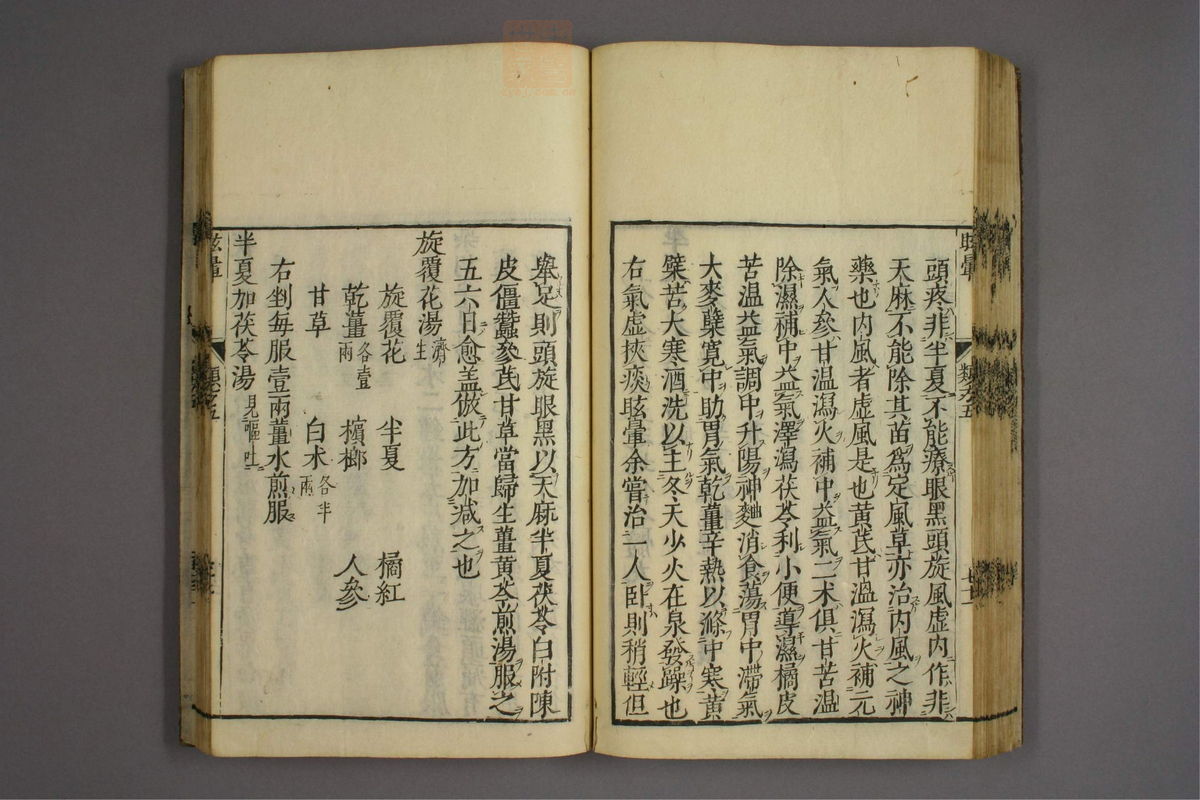 頭疼非半夏不能療眼黑頭旋風虚内作非
天麻不能除其苗爲定風草亦治内風之神
藥也内風者虚風是也黄芪甘溫瀉火補元
氣人參甘温瀉火補中益氣二术俱甘苦温
除濕補中益氣澤瀉茯苓利小便導濕橘皮
苦温益氣調中升陽神麯消食蕩胃中滯氣
大麥櫱寛中助胃氣乾薑辛熱以滌中寒黄
檗苦大寒酒洗以主冬天少火在泉發躁也
右氣虚挾痰眩暈余嘗治一人卧則稍輕但
舉足則頭旋眼黑以天麻半夏茯苓白附陳
皮僵蠶參芪甘草當歸生薑黄芩煎湯服之
五六日愈盖倣此方加减之也
旋覆花湯 濟生
旋覆花 半夏 橘紅
乾薑 各壹兩 檳榔 人參
甘草 白术 各半兩
右剉每服壹兩薑水煎服
半夏加茯苓湯 見嘔吐
眩暈
類之五